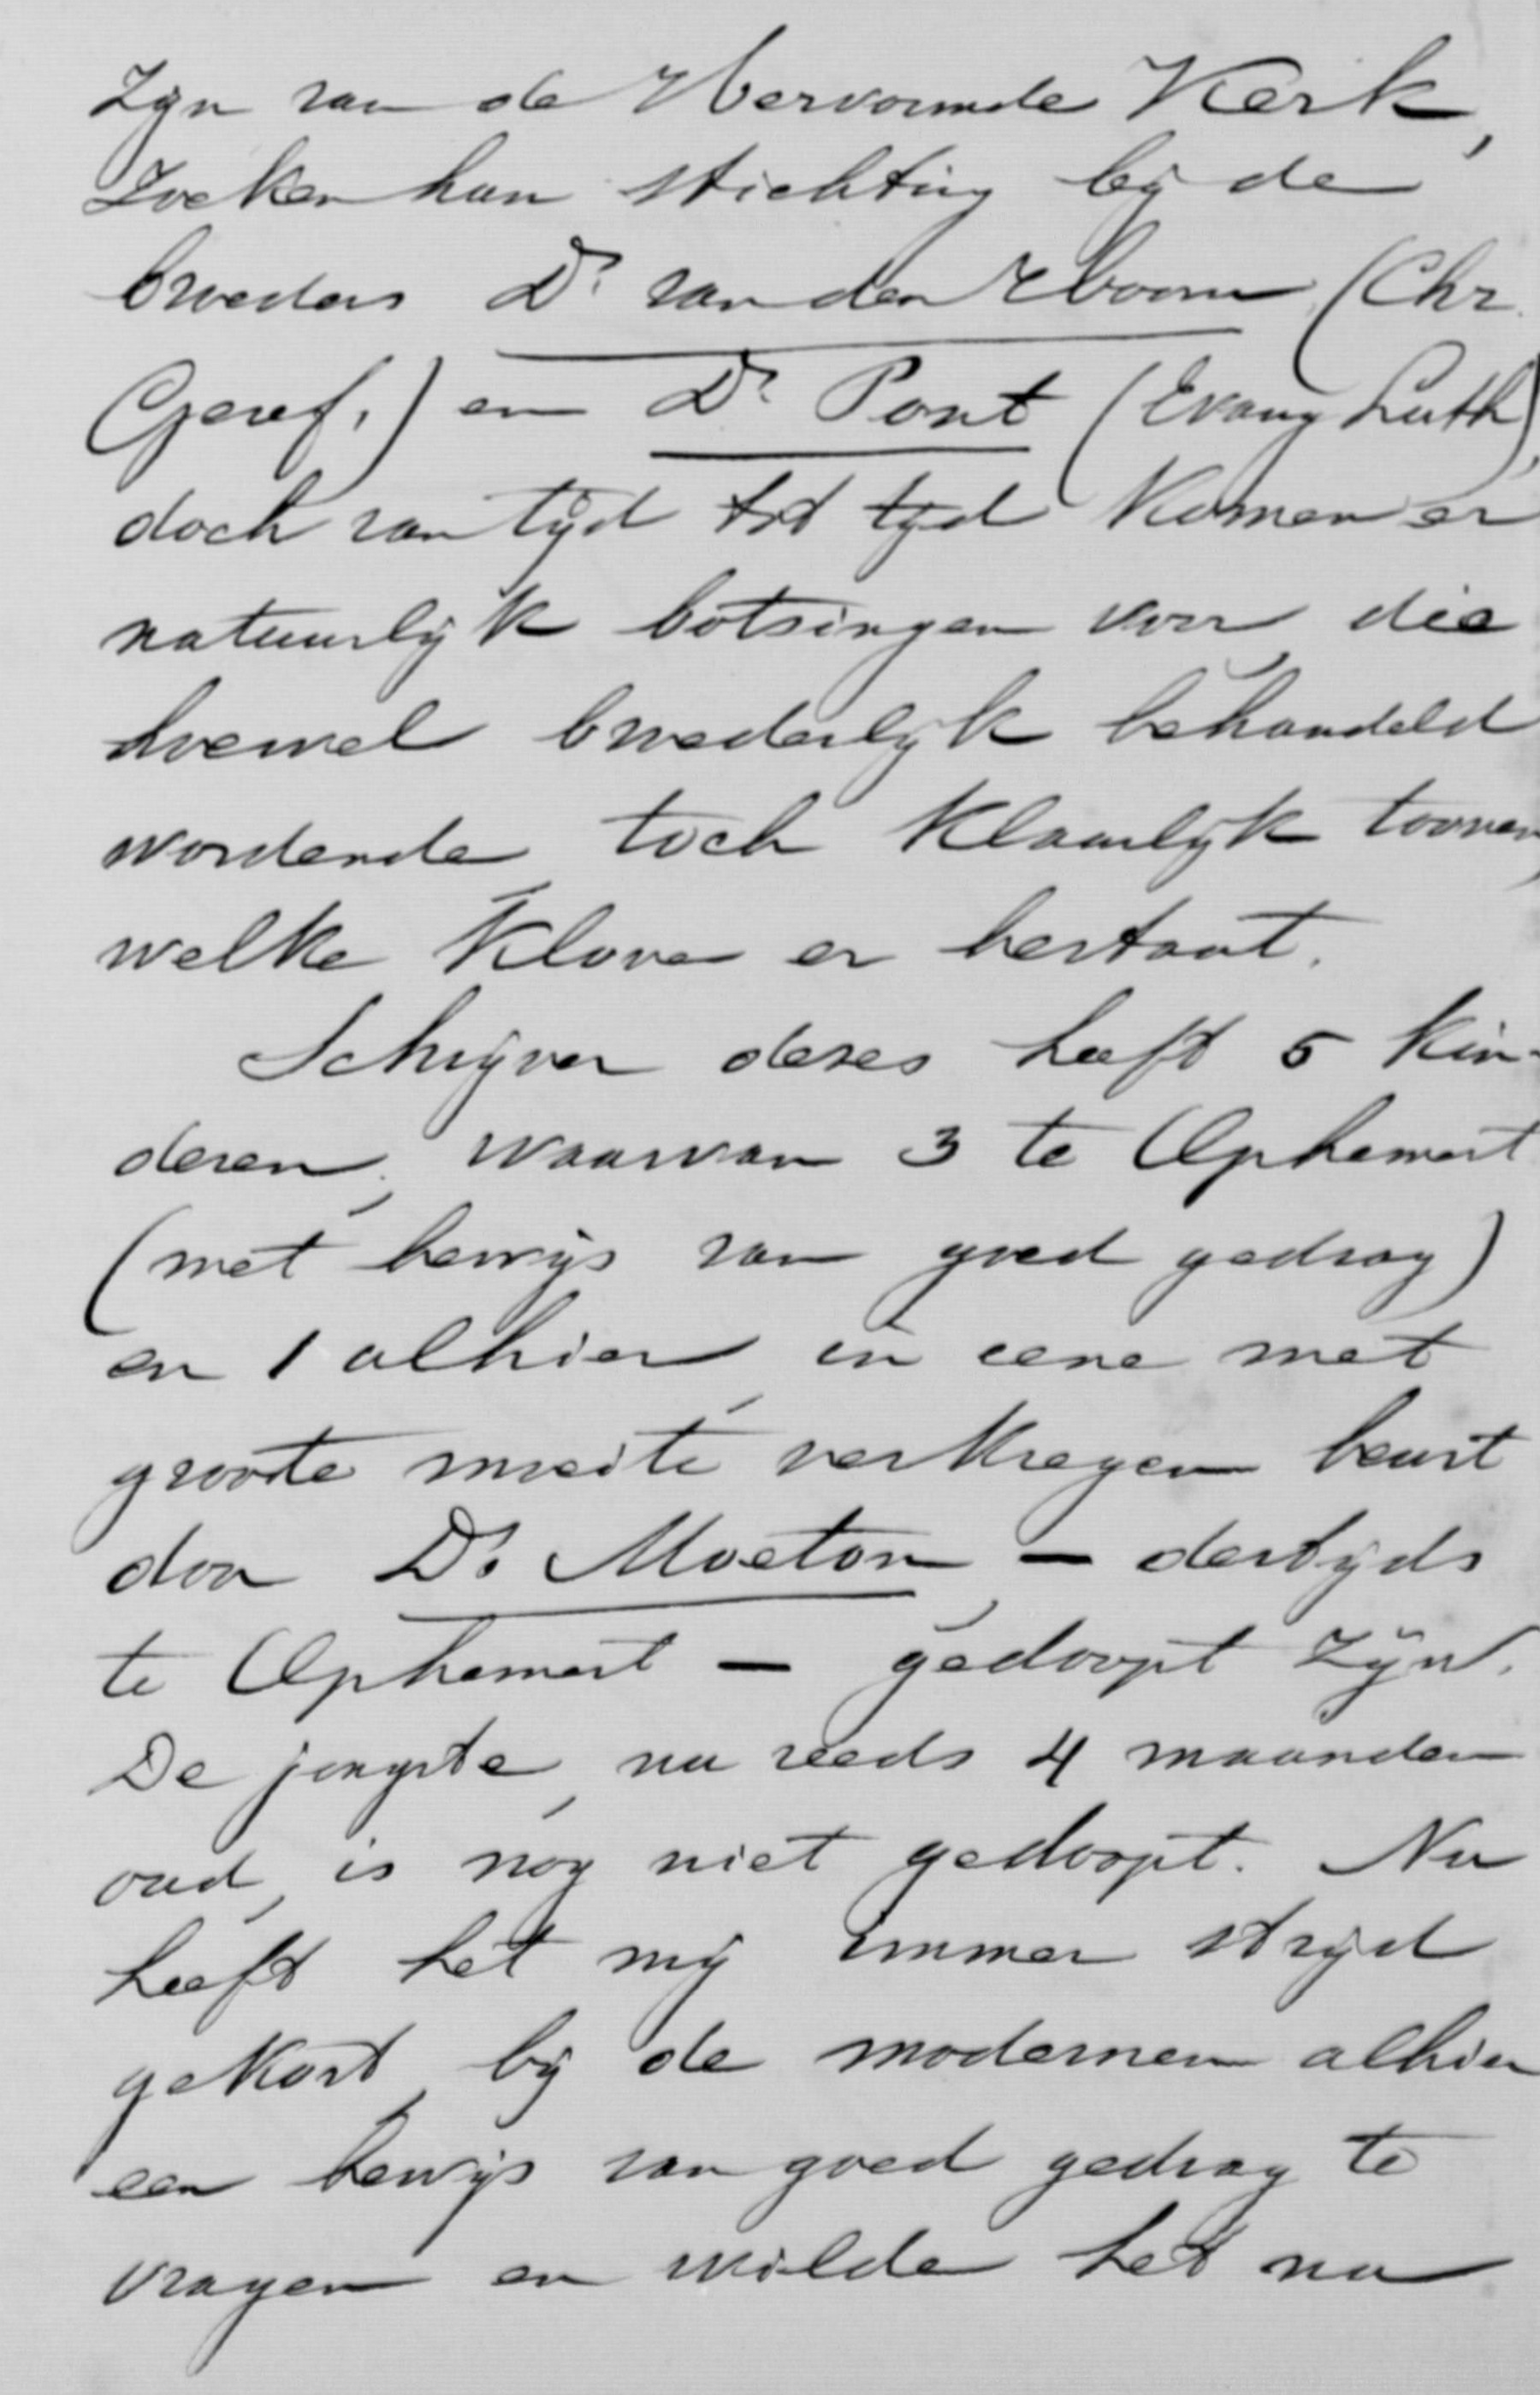 zijn van de Hervormde Kerk,
zoeken hun stichting bij de
broeders Ds. van den Hoorn (Chr.
Geref.) en Ds. Pont (Evang Luth),
doch van tijd tot tijd komen er
natuurlijk botsingen voor, die
hoewel broederlijk behandeld
wordende, toch klaarlijk toonen,
welke klove er bestaat.
Schrijver dezes heeft 5 kin-
deren, waarvan 3 te Ophemert
(met bewijs van goed gedrag)
en 1 alhier, in eene met
groote moeite verkregen beurt
door Ds. Moeton — destijds
te Ophemert — gedoopt zijn.
De jongste, nu reeds 4 maanden
oud, is nog niet gedoopt. Nu
heeft het mij immer strijd
gekost, bij de modernen alhier
een bewijs van goed gedrag te
vragen en wilde het nu